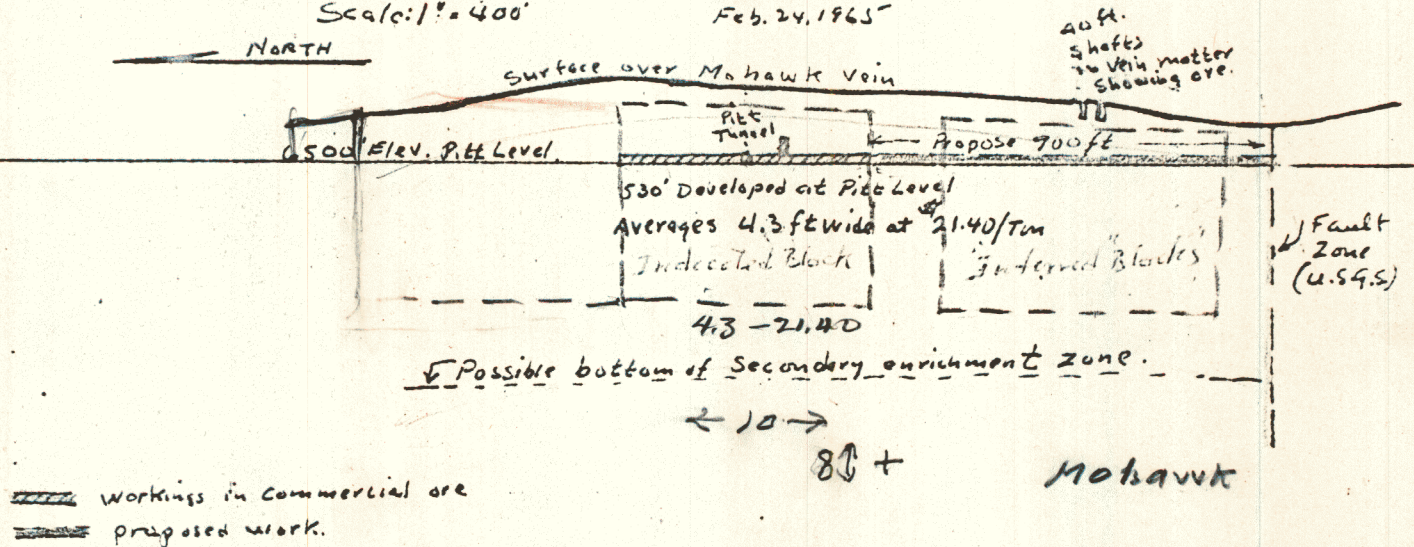 Scale: 1" = 400'
Feb. 24, 1965
NORTH
40 ft.
shafts
in vein matter
showing ore.
Surface over Mohawk Vein
Pitt
Tunnel
6500' Elev. Pitt Level.
Propose 900 ft
530' Developed at Pitt Level
Averages 4.3 ft wide at $21.40/Ton
Indicated Block
"Inferred Blocks"
Fault
Zone
(U.S.G.S)
4.3 - 21.40
Possible bottom of Secondary enrichment zone.
← 10 →
8↕ +
Mohawk
workings in commercial ore
proposed work.